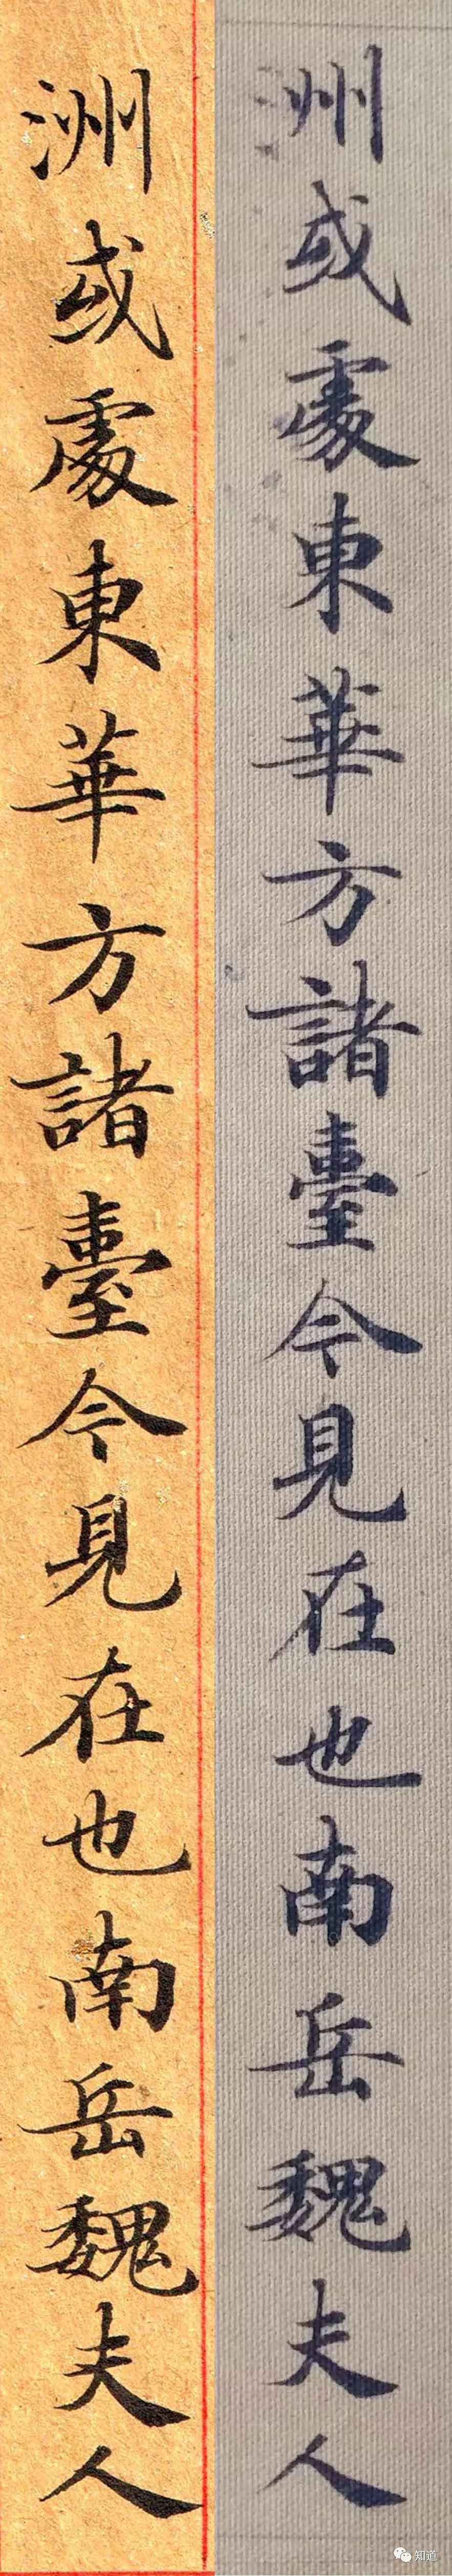 洲或處東華方諸臺今見在也南岳魏夫人
洲或處東華方諸臺今見在也南岳魏夫人
知道